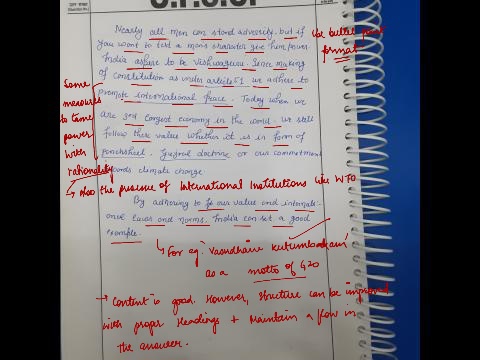 Nearly all men can stand adversity. but if
you want to test a mans character give him power.
India aspire to be Vishwaguru. Since making
of Constitution as under article 51 we adhere to
promote international peace. Today when we
are 3rd largest economy in the world. We still
follow these value whether it is in form of
panchsheel. Gujral doctrine or our commitment
towards climate change
By adhering to our value and internati-
onal laws and norms. India can set a good
example.
Use bullet point
format
Some
measures
to tame
power
with
rationality
→ Also the presence of International Institutions like WTO
↳ For eg 'Vasudhaiva Kutumbakam'
as a motto of G20
→ Content is good. However, structure can be improved
with proper Headings + Maintain a flow in
the answer.